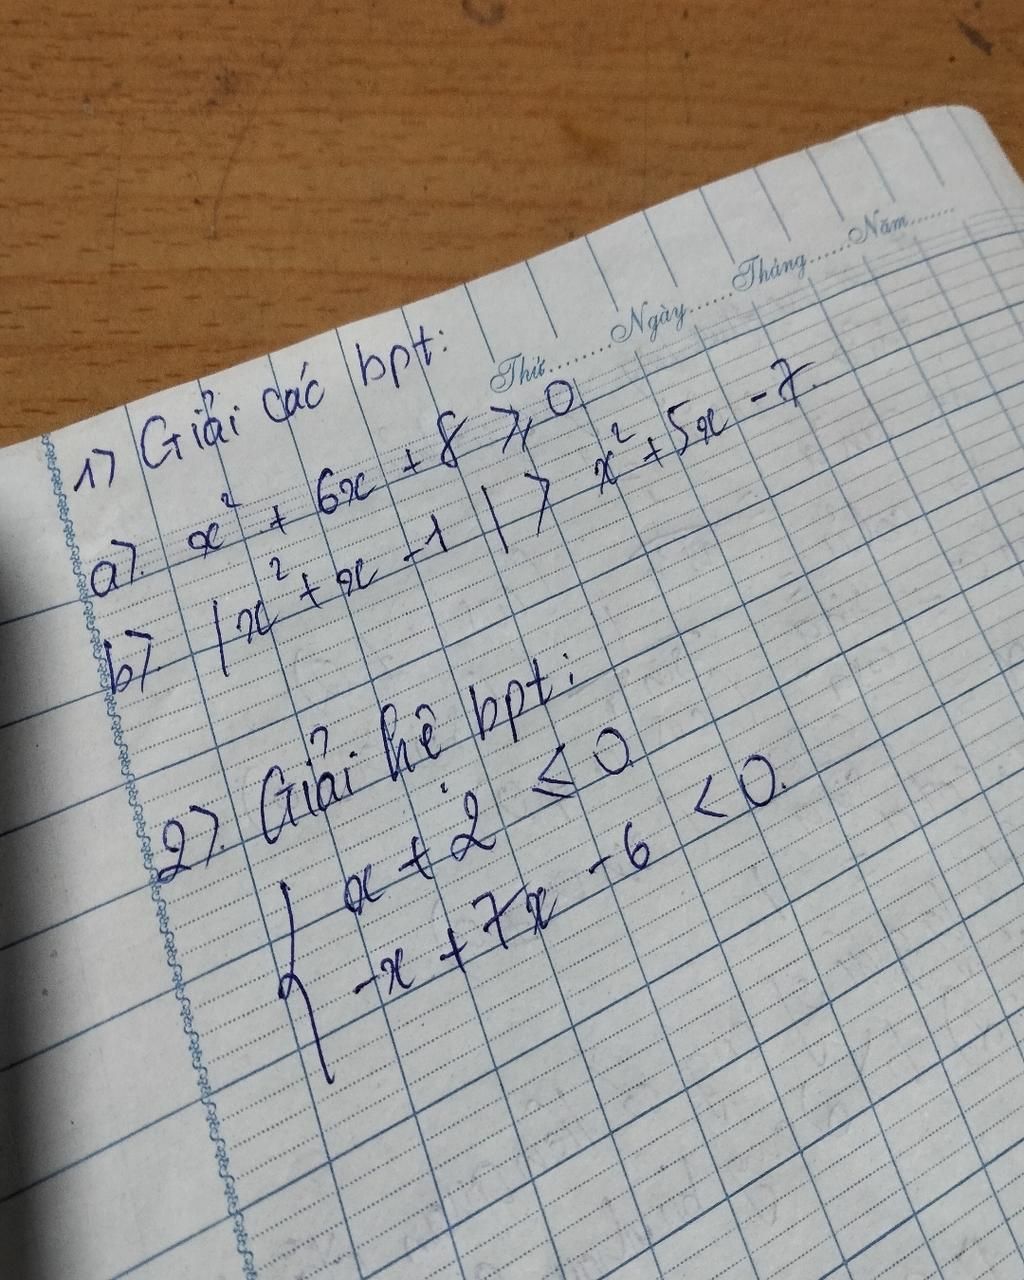 Thứ........Ngày.......Tháng.......Năm.......
1) Giải các bpt:
a). x² + 6x + 8 ⩾ 0
b) |x² + x - 1| > x² + 5x - 7.
2). Giải hệ bpt:
{ x + 2 ≤ 0
-x + 7x - 6 < 0.